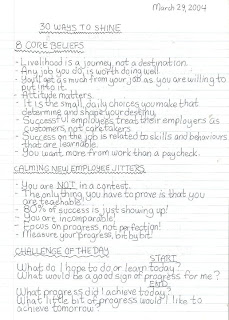 March 29, 2004
30 WAYS TO SHINE
8 CORE BELIEFS
- Livelihood is a journey, not a destination.
- Any job you do, is worth doing well.
- You'll get as much from your job as you are willing to
put into it.
- Attitude matters.
- It is the small, daily choices you make that
determine and shape your destiny.
- Successful employees treat their employers as
customers, not caretakers.
- Success on the job is related to skills and behaviours
that are learnable.
- You want more from work than a paycheck.
CALMING NEW EMPLOYEE JITTERS
- You are NOT in a contest.
- The only thing you have to prove is that you
are teachable!
- 80% of success is just showing up!
- You are incomparable!
- Focus on progress, not perfection!
- Measure your progress, bit by bit!
CHALLENGE OF THE DAY
START
What do I hope to do or learn today?
What would be a good sign of progress for me?
END
What progress did I achieve today?
What little bit of progress would I like to
achieve tomorrow?